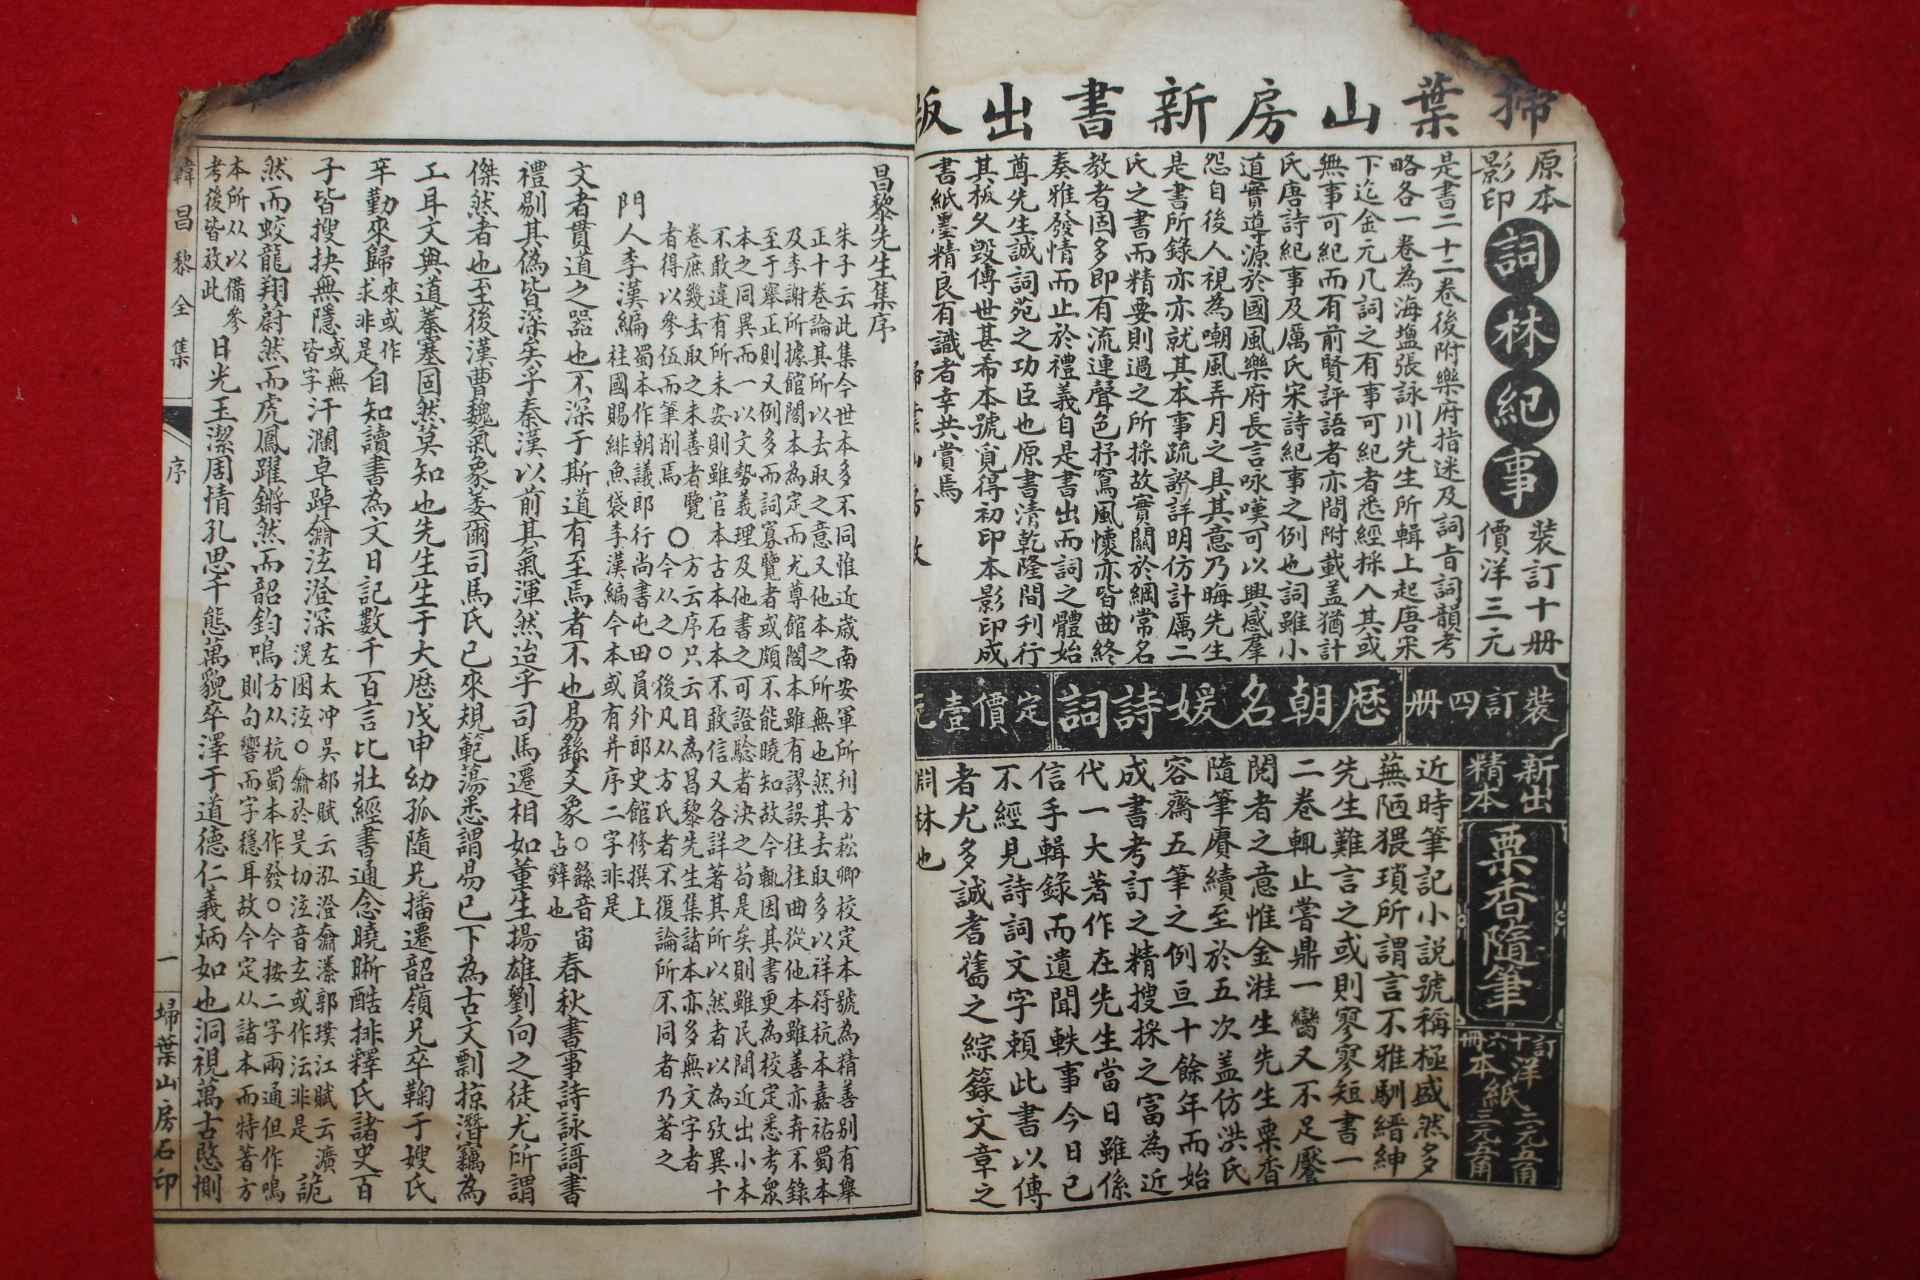 掃葉山房新書出版
原本
影印
詞林紀事
裝訂十册
價洋三元
是書二十二卷後附樂府指迷及詞旨詞韻考
略各一卷為海盐張詠川先生所輯上起唐宋
下迄金元凡詞之有事可紀者悉經採入其或
無事可紀而有前賢評語者亦間附載盖猶計
氏唐詩紀事及厲氏宋詩紀事之例也詞雖小
道實導源於國風樂府長言咏嘆可以興感羣
怨自後人視為嘲風弄月之具其意乃晦先生
是書所錄亦亦就其本事疏證詳明仿計厲二
氏之書而精要則過之所採故實關於綱常名
教者固多即有流連聲色抒寫風懷亦皆曲終
奏雅發情而止於禮義自是書出而詞之體始
尊先生誠詞苑之功臣也原書清乾隆間刊行
其板久毀傳世甚希本號覓得初印本影印成
書紙墨精良有識者幸共賞焉
裝訂四册
歷朝名媛詩詞
定價壹元
新出
精本
粟香隨筆
訂十六册
洋紙二元五角
本紙三元五角
近時筆記小說號稱極盛然多
蕪陋猥瑣所謂言不雅馴縉紳
先生難言之或則寥寥短書一
二卷輒止嘗鼎一臠又不足饜
閱者之意惟金湉生先生粟香
隨筆賡續至於五次盖仿洪氏
容齋五筆之例亘十餘年而始
成書考訂之精搜採之富為近
代一大著作在先生當日雖係
信手輯錄而遺聞軼事今日已
不經見詩詞文字賴此書以傳
者尤多誠耆舊之綜籙文章之
淵林也
昌黎先生集序
朱子云此集今世本多不同惟近歲南安軍所刊方崧卿校定本號為精善别有舉
正十卷論其所以去取之意又他本之所無也然其去取多以祥符杭本嘉祐蜀本
及李謝所據館閣本為定而尤尊館閣本雖有謬誤往往曲從他本雖善亦弃不錄
至于舉正則又例多而詞寡覽者或頗不能曉知故今輒因其書更為校定悉考眾
本之同異而一以文勢義理及他書之可證驗者決之苟是矣則雖民間近出小本
不敢違有所未安則雖官本古本石本不敢信又各詳著其所以然者以為攷異十
卷庶幾去取之未善者覽 〇方云序只云目為昌黎先生集諸本亦多無文字者
者得以參伍而筆削焉 〇今从之〇後凡从方氏者不復論所不同者乃著之
門人李漢編 蜀本作朝議郎行尚書屯田員外郎史館修撰上
柱國賜緋魚袋李漢編今本或有并序二字非是
文者貫道之器也不深于斯道有至焉者不也易繇爻象〇繇音宙占辭也春秋書事詩詠謌書
禮剔其偽皆深矣乎秦漢以前其氣渾然迨乎司馬遷相如董生揚雄劉向之徒尤所謂
傑然者也至後漢曹魏氣象萎爾司馬氏已來規範蕩悉謂易已下為古文剽掠潛竊為
工耳文與道蓁塞固然莫知也先生生于大歷戊申幼孤隨兄播遷韶嶺兄卒鞠于嫂氏
辛勤來歸來或作求非是自知讀書為文日記數千百言比壯經書通念曉晰酷排釋氏諸史百
子皆搜抉無隱或無皆字汗瀾卓踔奫泫澄深左太沖吳都賦云泓澄奫潫郭璞江賦云㶇滉囦泫〇奫於旻切泫音玄或作沄非是詭
然而蛟龍翔蔚然而虎鳳躍鏘然而韶鈞鳴方从杭蜀本作發〇今按二字兩通但作鳴則句響而字穩耳故今定从諸本而特著方
本所从以備參考後皆放此日光玉潔周情孔思千態萬貌卒澤于道德仁義炳如也洞視萬古愍惻
韓昌黎全集
序
一
埽葉山房石印